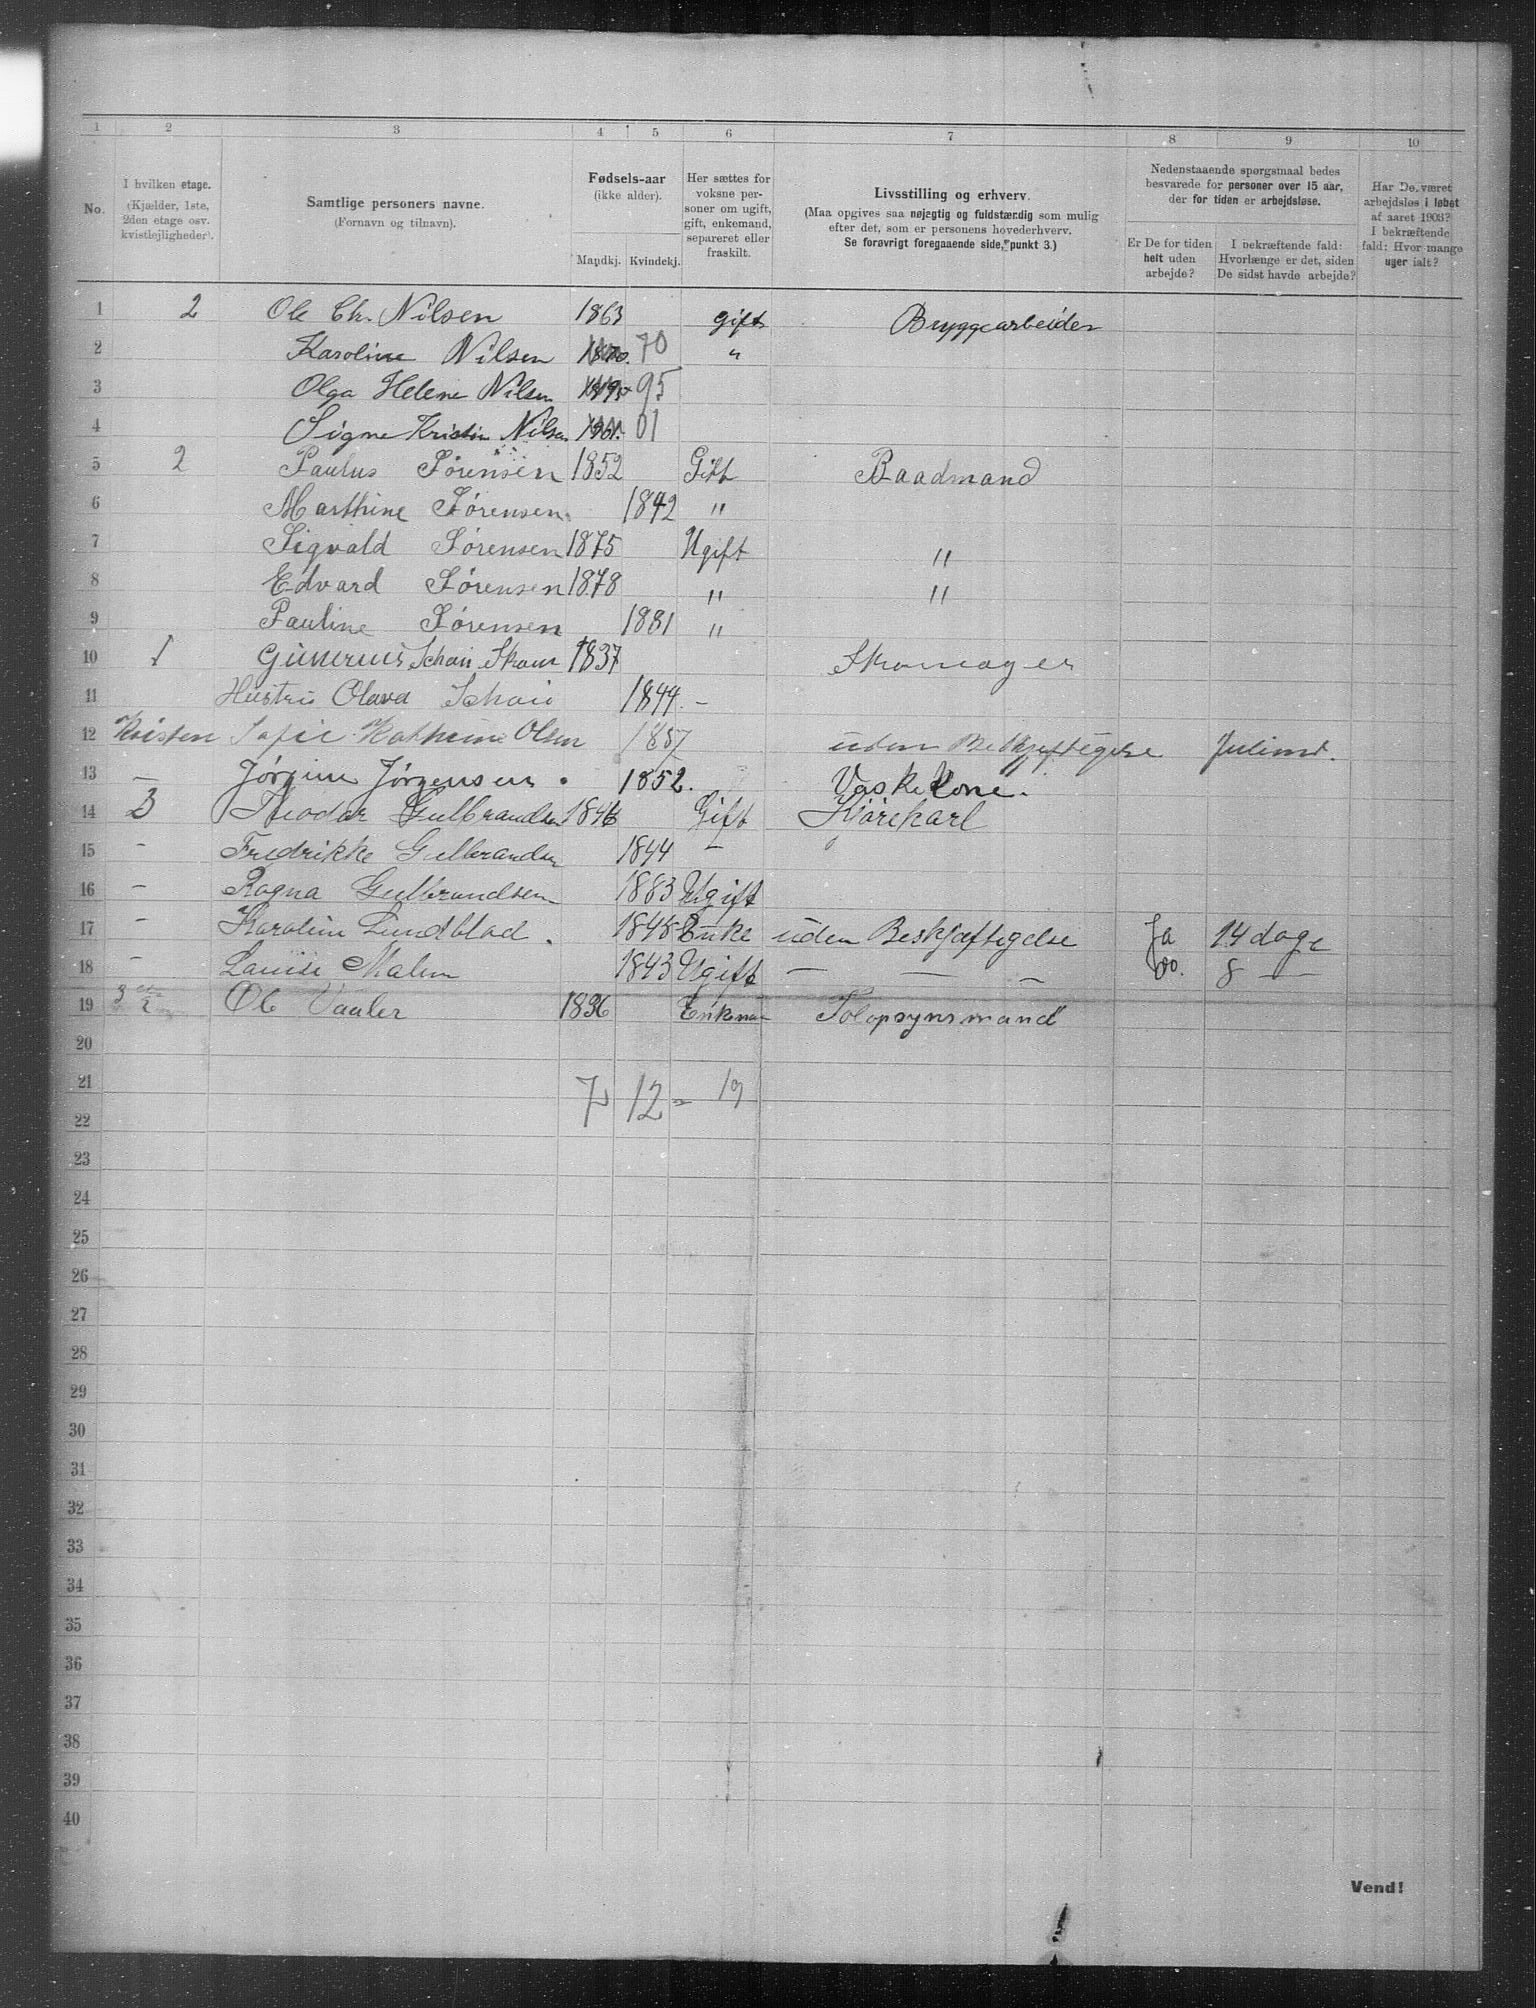 1 2 3 4 5 6 7 8 9 10
No.
I hvilken etage.
(Kjælder, 1ste,
2den etage osv.
kvistlejligheder).
Samtlige personers navne.
(Fornavn og tilnavn).
Fødsels-aar
(ikke alder).
Mandkj. Kvindekj.
Her sættes for
voksne per-
soner om ugift,
gift, enkemand,
separeret eller
fraskilt.
Livsstilling og erhverv.
(Maa opgives saa nøjegtig og fuldstændig som mulig
efter det, som er personens hovederhverv.
Se forøvrigt foregaaende side, punkt 3.)
Nedenstaaende spørgsmaal bedes
besvarede for personer over 15 aar,
der for tiden er arbejdsløse.
Er De for tiden
helt uden
arbejde?
I bekræftende fald:
Hvorlænge er det, siden
De sidst havde arbejde?
Har De været
arbejdsløs i løbet
af aaret 1903?
I bekræftende
fald: Hvor mange
uger ialt?
1 2 Ole Chr. Nilsen 1863 gift Bryggearbeider
2 Karoline Nilsen 1870. 70 "
3 Olga Helene Nilsen 1895 95
4 Signe Kristin Nilsen 1901. 01
5 2 Paulus Sørensen 1852 Gift Baadmand
6 Marthine Sørensen. 1842 "
7 Sigvald Sørensen 1875 Ugift "
8 Edvard Sørensen 1878 " "
9 Pauline Sørensen 1881 "
10 1 Gunerius Schou 1837 Skomager
11 Hustru Olava Schou 1844. -
12 Kvisten Sofie Kathrine Olsen 1857 uden Beskjeftigelse
13 - Jørgine Jørgensen. 1852. Vaskekone.
14 3 Theodor Gulbrandsen 1846 Gift Kjørekarl
15 - Fredrikke Gulbrandsen 1844 -
16 - Ragna Gulbrandsen 1883 Ugift
17 - Karoline Lundblad. 1848 Enke uden Beskjæftigelse Ja 14 dage
18 - Louise Malm 1843 Ugift - - - Do. 8 -
19 Ole Vauler 1836 Enkema Toldopsynsmand
20
21
7 12 = 19
22
23
24
25
26
27
28
29
30
31
32
33
34
35
36
37
38
39
40
Vend!